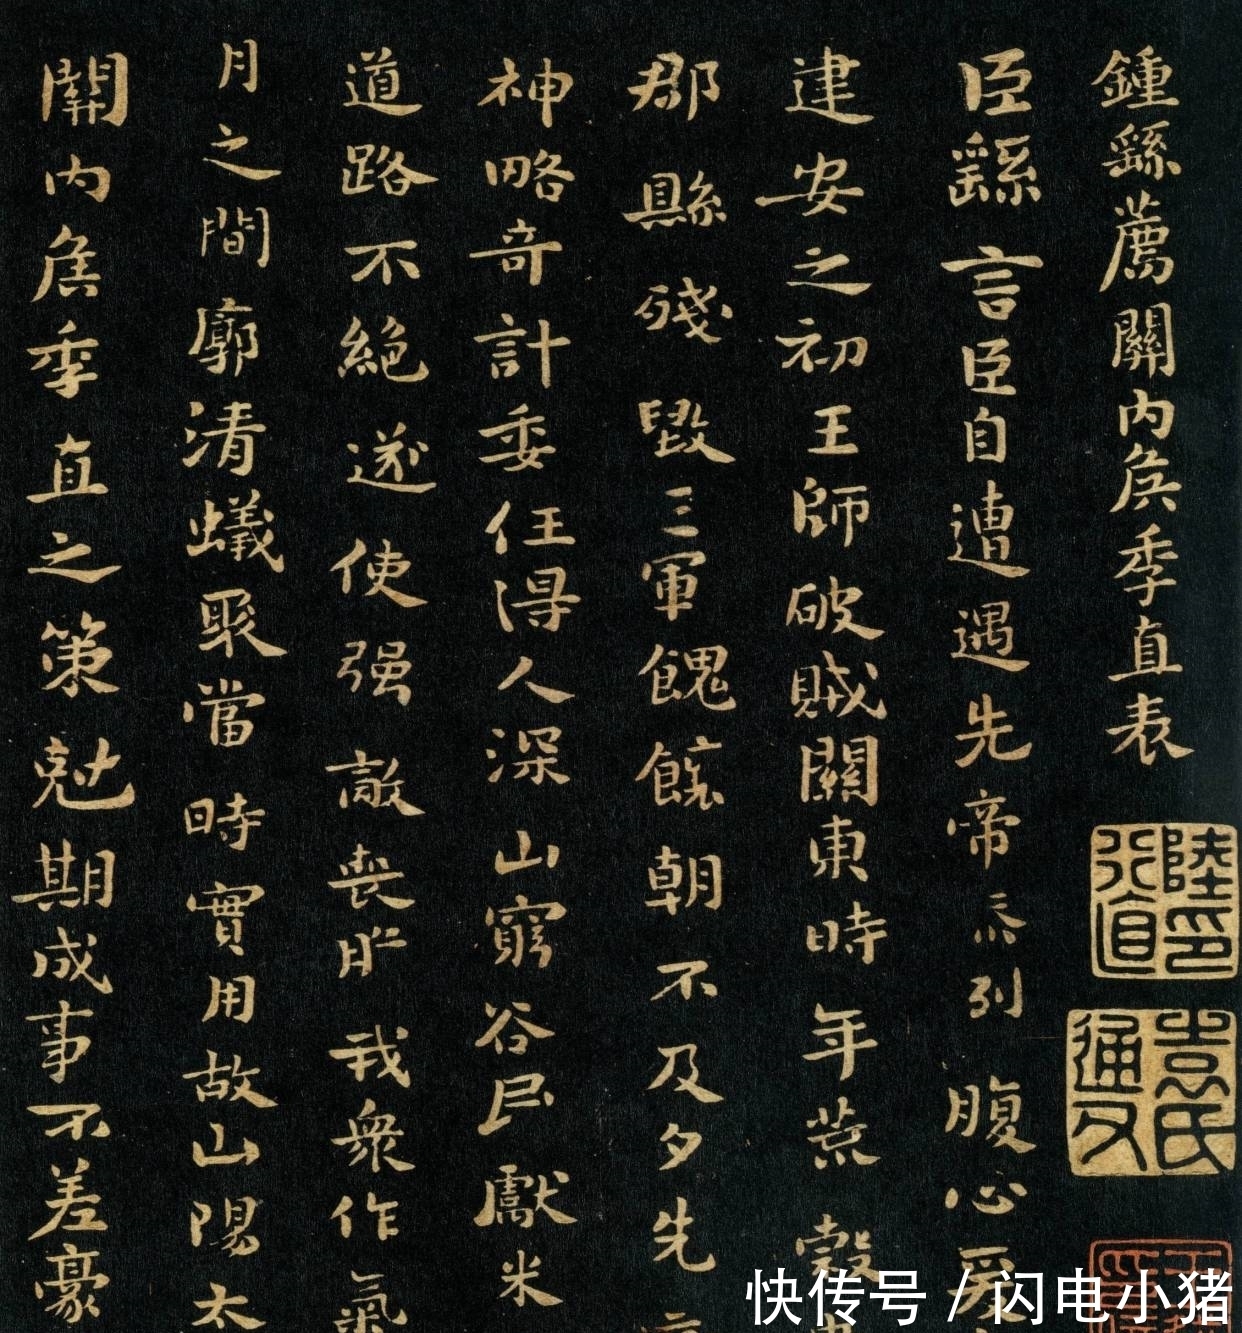 鍾繇薦關內侯季直表
臣繇言臣自遭遇先帝忝列腹心爰
建安之初王師破賊關東時年荒穀
郡縣殘毀三軍餽饟朝不及夕先
神略奇計委任得人深山窮谷民獻米
道路不絕遂使强敵喪膽我衆作氣
月之間廓清蟻聚當時實用故山陽太
關內侯季直之策尅期成事不差豪
陸行直印
袁氏通父
快传号 / 闪电小猪